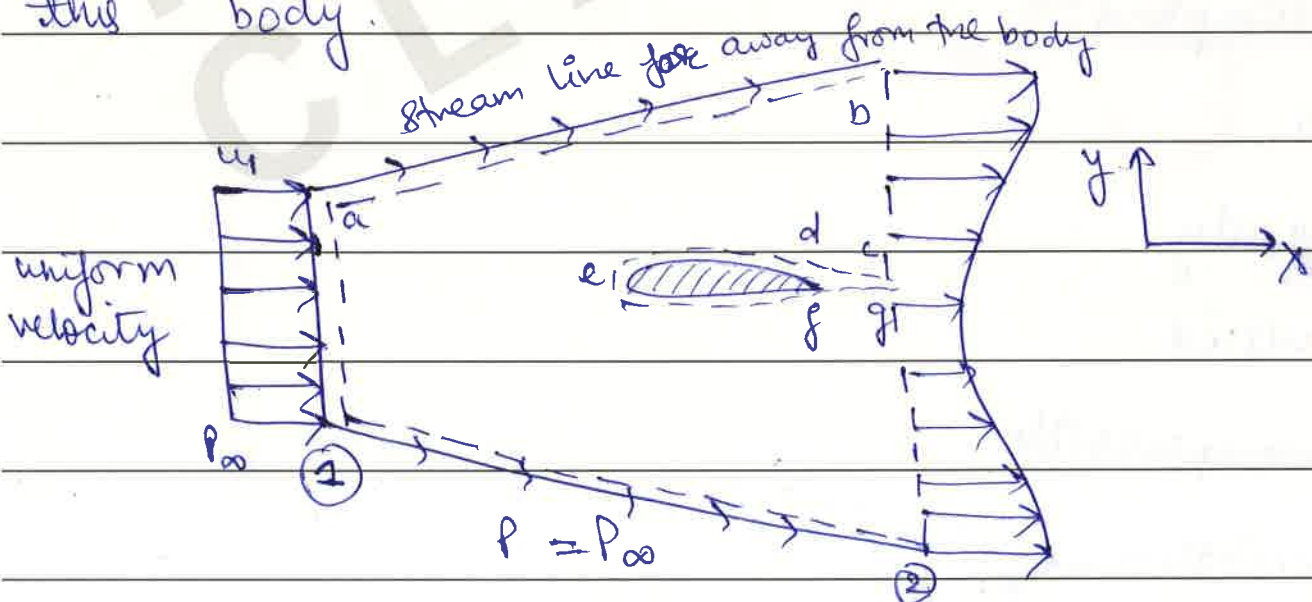 this body.
stream line for away from the body
b
u₁
a
y
x
d
c
e
uniform
velocity
f
g
P∞
①
P = P∞
②